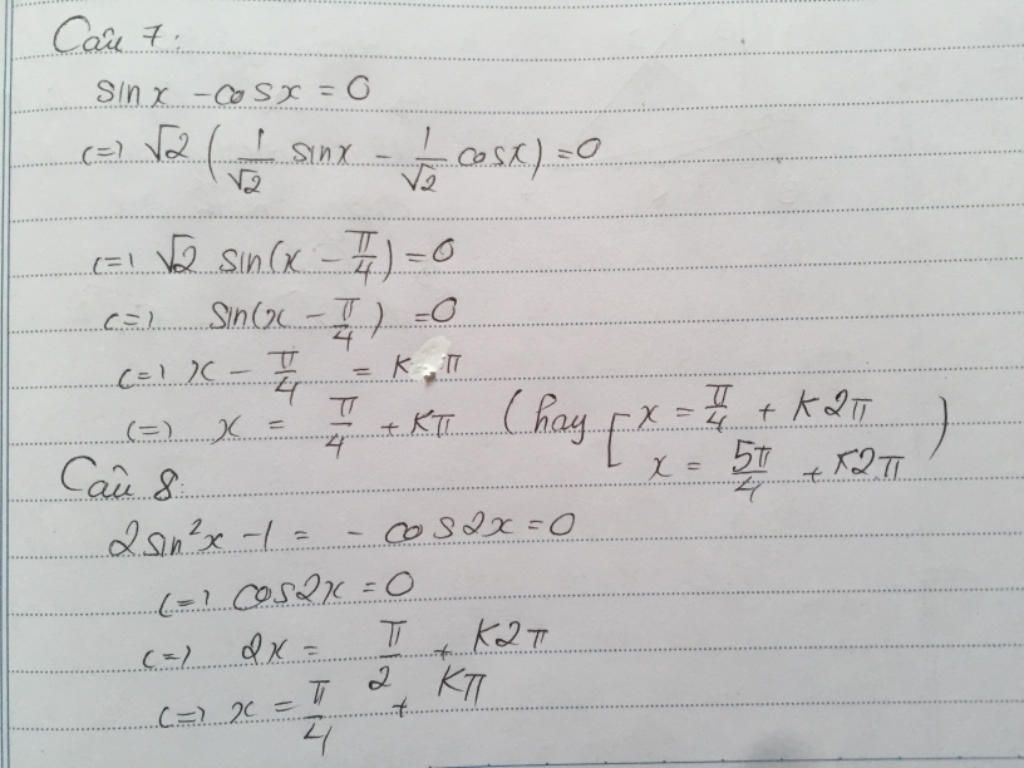 Câu 7:
sin x - cos x = 0
<=> √2 ( 1/√2 sin x - 1/√2 cos x ) = 0
<=> √2 sin(x - π/4) = 0
<=> sin(x - π/4) = 0
<=> x - π/4 = K π
<=> x = π/4 + Kπ ( hay [ x = π/4 + K2π
x = 5π/4 + K2π )
Câu 8:
2 sin²x - 1 = - cos 2x = 0
<=> cos 2x = 0
<=> 2x = π/2 + K2π
<=> x = π/4 + Kπ